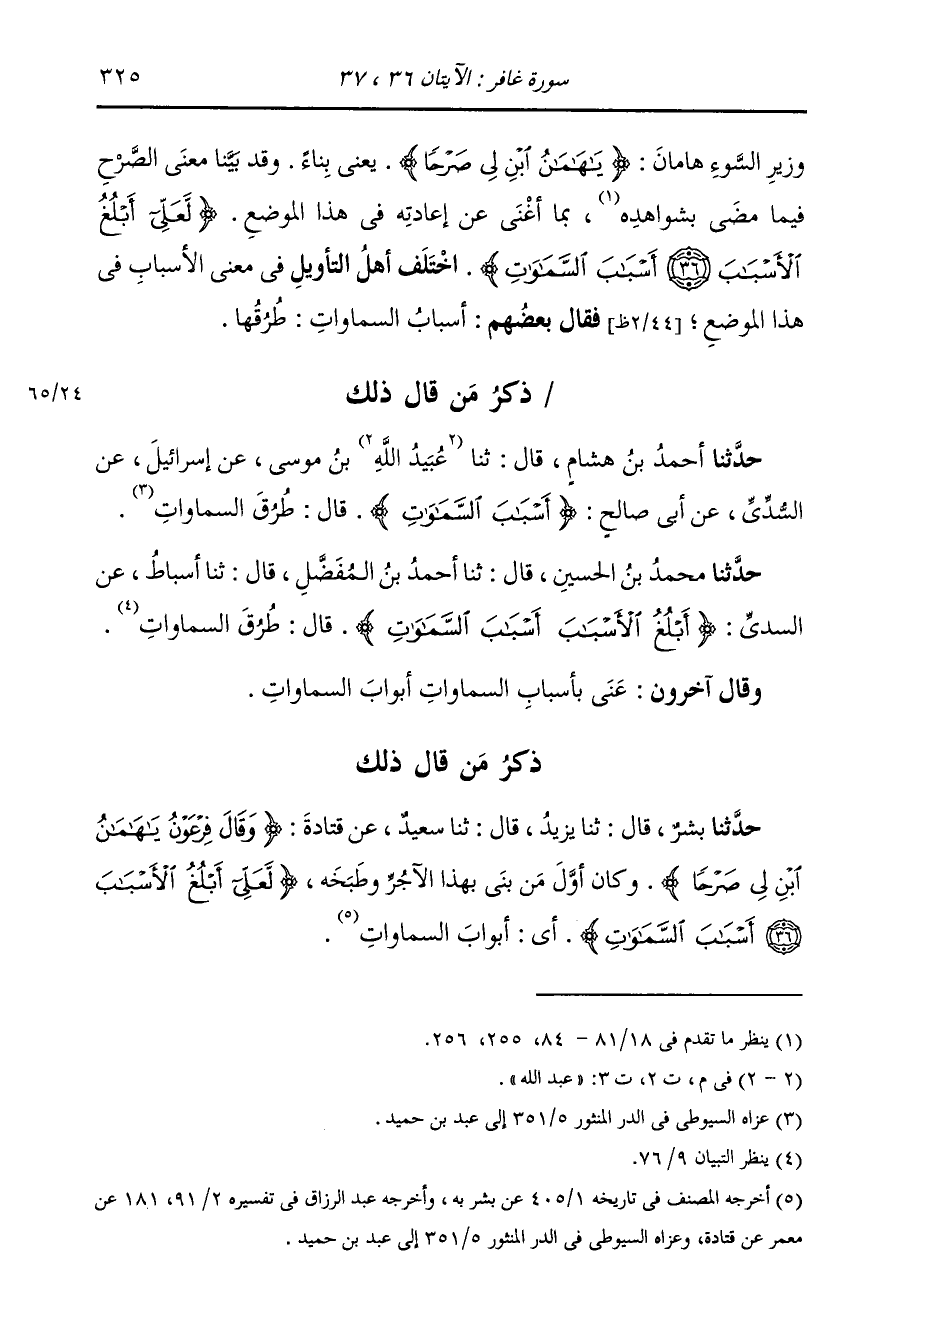 سورة غافر : الآيتان ٣٦ ، ٣٧
٣٢٥
وزيرِ السَّوءِ هامانَ : ﴿ يَٰهَٰمَٰنُ ٱبْنِ لِى صَرْحًا ﴾ . يعنى بِناءً . وقد بَيَّنا معنَى الصَّرْحِ
فيما مضَى بشواهدِه(١) ، بما أغْنَى عن إعادتِه فى هذا الموضعِ . ﴿ لَّعَلِّىٓ أَبْلُغُ
ٱلْأَسْبَٰبَ (٣٦) أَسْبَٰبَ ٱلسَّمَٰوَٰتِ ﴾ . اخْتَلَف أهلُ التأويلِ فى معنى الأسبابِ فى
هذا الموضعِ ؛ [٢/٤٤ظ] فقال بعضُهم : أسبابُ السماواتِ : طُرُقُها .
/ ذكرُ مَن قال ذلك
٦٥/٢٤
حدَّثنا أحمدُ بنُ هشامٍ ، قال : ثنا (٢عُبَيدُ اللَّهِ٢) بنُ موسى ، عن إسرائيلَ ، عن
السُّدِّىِّ ، عن أبى صالحٍ : ﴿ أَسْبَٰبَ ٱلسَّمَٰوَٰتِ ﴾ . قال : طُرُقَ السماواتِ(٣) .
حدَّثنا محمدُ بنُ الحسينِ ، قال : ثنا أحمدُ بنُ المُفَضَّلِ ، قال : ثنا أسباطُ ، عن
السدىِّ : ﴿ أَبْلُغُ ٱلْأَسْبَٰبَ أَسْبَٰبَ ٱلسَّمَٰوَٰتِ ﴾ . قال : طُرُقَ السماواتِ(٤) .
وقال آخرون : عَنَى بأسبابِ السماواتِ أبوابَ السماواتِ .
ذكرُ مَن قال ذلك
حدَّثنا بشرٌ ، قال : ثنا يزيدُ ، قال : ثنا سعيدٌ ، عن قتادةَ : ﴿ وَقَالَ فِرْعَوْنُ يَٰهَٰمَٰنُ
ٱبْنِ لِى صَرْحًا ﴾ . وكان أوَّلَ مَن بنَى بهذا الآجُرِّ وطبَخَه ، ﴿ لَّعَلِّىٓ أَبْلُغُ ٱلْأَسْبَٰبَ
(٣٦) أَسْبَٰبَ ٱلسَّمَٰوَٰتِ ﴾ . أى : أبوابَ السماواتِ(٥) .
(١) ينظر ما تقدم فى ٨١/١٨ - ٨٤، ٢٥٥، ٢٥٦.
(٢ - ٢) فى م، ت ٢، ت ٣: «عبد الله» .
(٣) عزاه السيوطى فى الدر المنثور ٣٥١/٥ إلى عبد بن حميد .
(٤) ينظر التبيان ٩/ ٧٦.
(٥) أخرجه المصنف فى تاريخه ٤٠٥/١ عن بشر به ، وأخرجه عبد الرزاق فى تفسيره ٢/ ٩١، ١٨١ عن
معمر عن قتادة، وعزاه السيوطى فى الدر المنثور ٣٥١/٥ إلى عبد بن حميد .